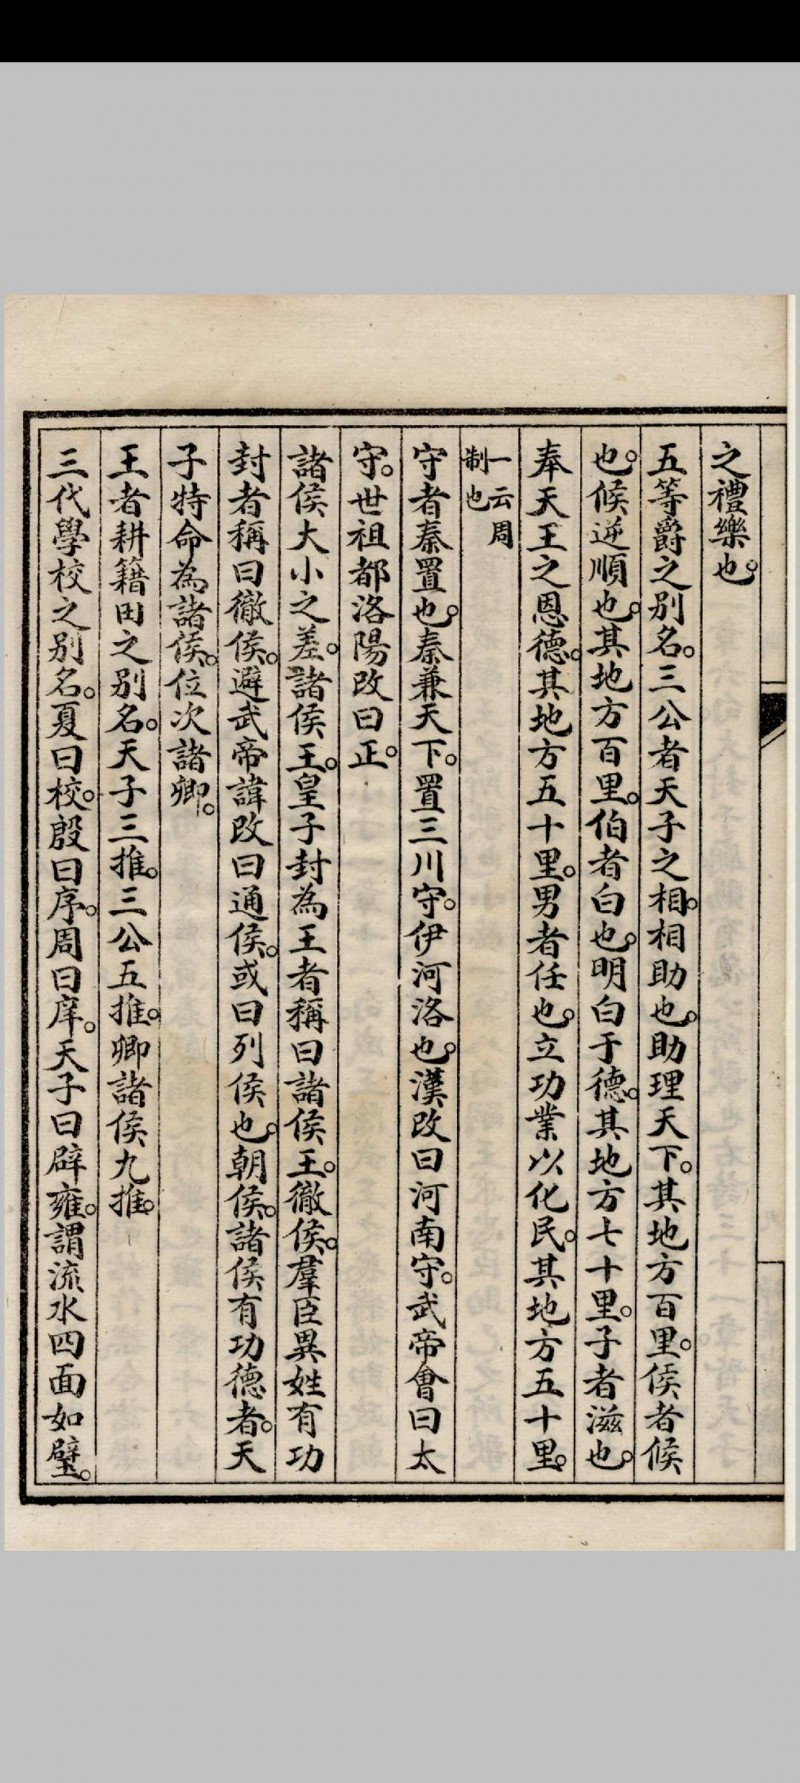 之禮樂也。
五等爵之别名。三公者天子之相。相助也。助理天下。其地方百里。侯者候
也。候逆順也。其地方百里。伯者白也。明白于德。其地方七十里。子者滋也。
奉天王之恩德。其地方五十里。男者任也。立功業以化民。其地方五十里。
一云周
制也
守者秦置也。秦兼天下。置三川守。伊河洛也。漢改曰河南守。武帝會曰太
守。世祖都洛陽改曰正。
諸侯大小之差。諸侯王。皇子封為王者稱曰諸侯王。徹侯。羣臣異姓有功
封者稱曰徹侯。避武帝諱改曰通侯。或曰列侯也。朝侯。諸侯有功德者。天
子特命為諸侯。位次諸卿。
王者耕籍田之别名。天子三推。三公五推。卿諸侯九推。
三代學校之别名。夏曰校。殷曰序。周曰庠。天子曰辟雍。謂流水四面如璧。